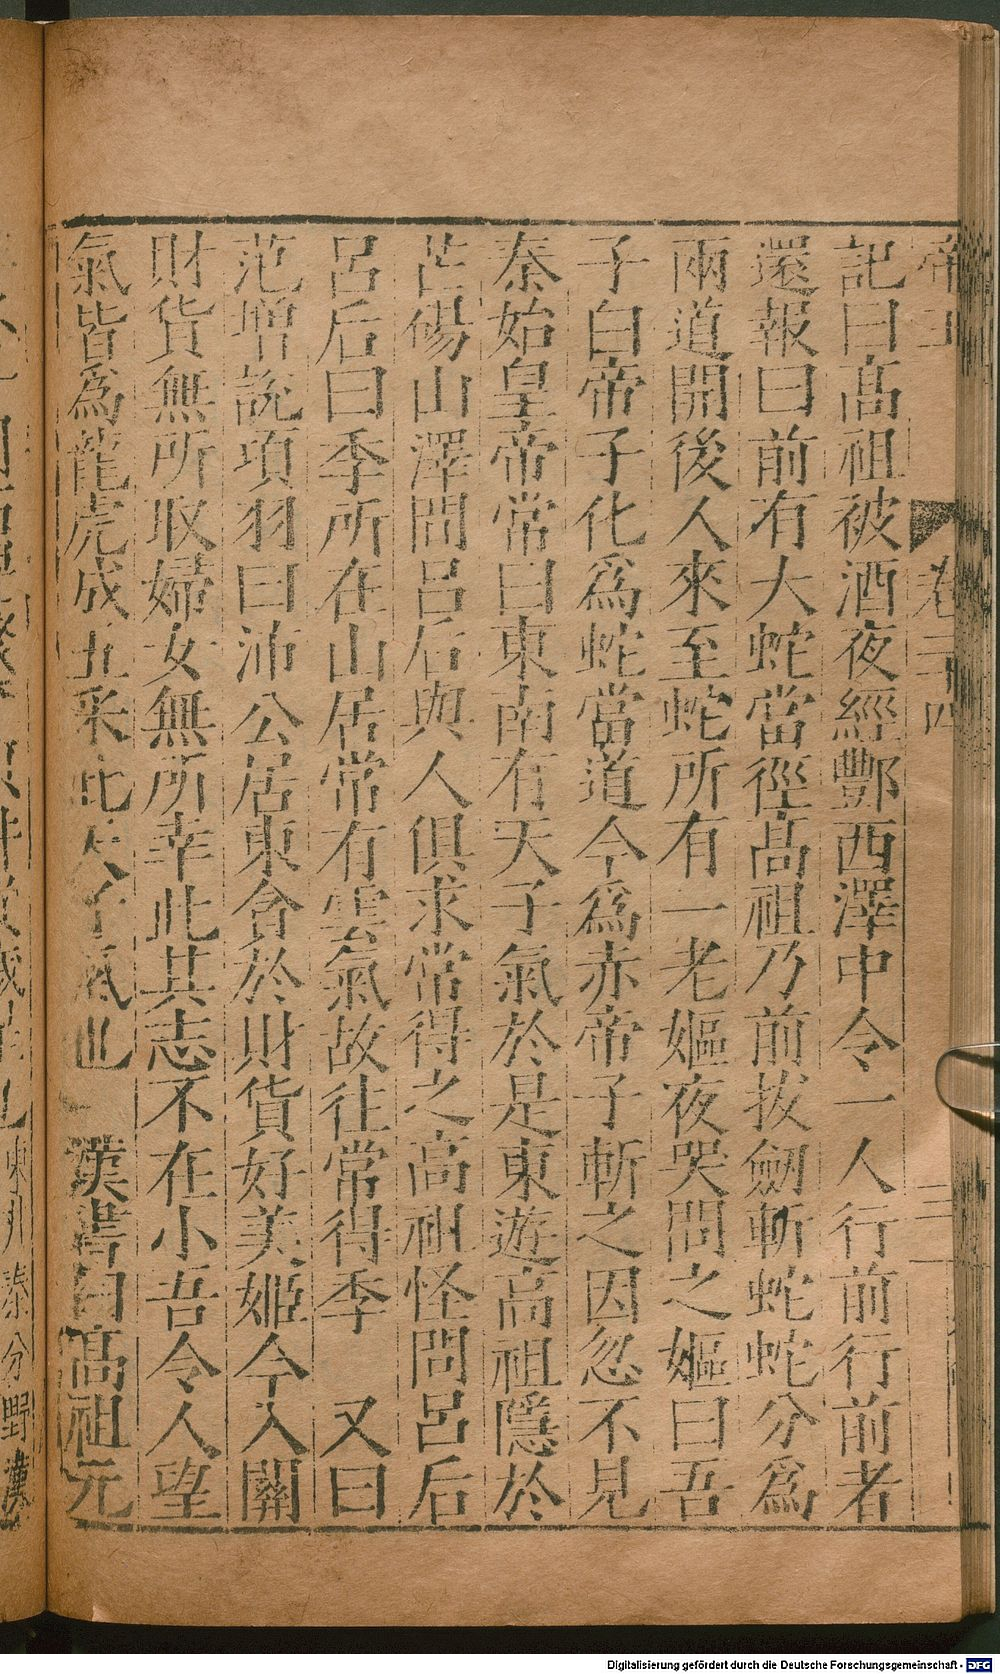 帝王 卷三十四 三
記曰高祖被酒夜經酆西澤中令一人行前行前者
還報曰前有大蛇當徑高祖乃前拔劒斬蛇蛇分爲
兩道開後人來至蛇所有一老嫗夜哭問之嫗曰吾
子白帝子化爲蛇當道今爲赤帝子斬之因忽不見
秦始皇帝常曰東南有天子氣於是東遊高祖隱於
芒碭山澤間呂后與人俱求常得之高祖怪問呂后
呂后曰季所在山居常有雲氣故往常得季 又曰
范增說項羽曰沛公居東貪於財貨好美姬今入關
財貨無所取婦女無所幸此其志不在小吾令人望
氣皆爲龍虎成五采此天子氣也 漢書曰高祖元
東井秦分野漢
Digitalisierung gefördert durch die Deutsche Forschungsgemeinschaft - DFG